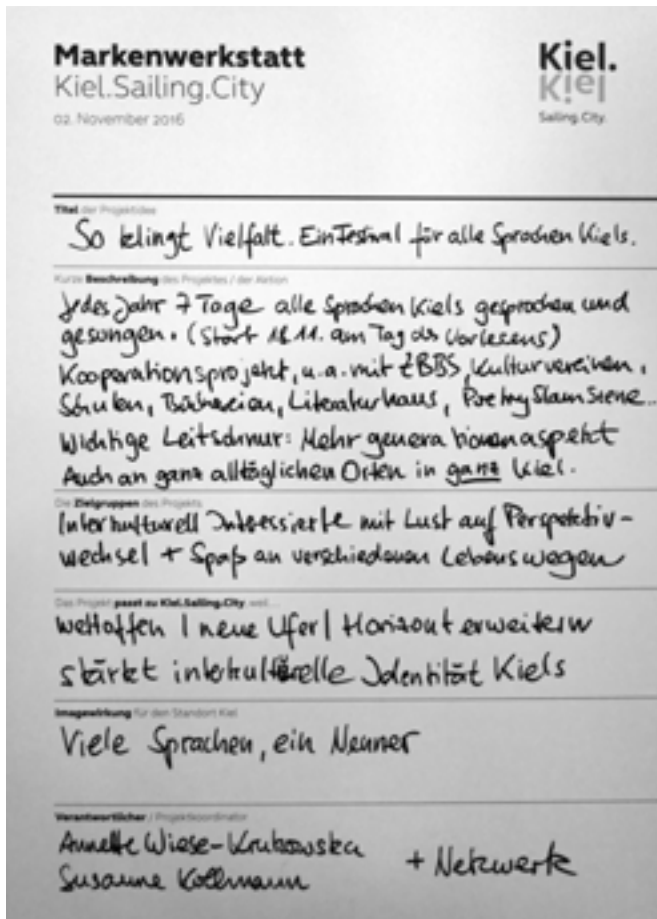 Markenwerkstatt
Kiel.Sailing.City
02. November 2016
Kiel.
Kiel
Sailing.City.
Titel der Projektidee
So klingt Vielfalt. Ein Festival für alle Sprachen Kiels.
Kurze Beschreibung des Projektes / der Aktion
Jedes Jahr 7 Tage alle Sprachen Kiels gesprochen und
gesungen. (Start 18.11. am Tag des Vorlesens)
Kooperationsprojekt, u.a. mit ZBBS, Kulturvereinen,
Schulen, Büchereien, Literaturhaus, Poetry Slam Szene...
Wichtige Leitschnur: Mehrgenerationenaspekt
Auch an ganz alltäglichen Orten in ganz Kiel.
Die Zielgruppen des Projekts
Interkulturell Interessierte mit Lust auf Perspektiv-
wechsel + Spaß an verschiedenen Lebenswegen
Das Projekt passt zu Kiel.Sailing.City, weil...
weltoffen | neue Ufer | Horizont erweitern
stärkt interkulturelle Identität Kiels
Imagewirkung für den Standort Kiel
Viele Sprachen, ein Nenner
Verantwortlicher / Projektkoordinator
Annette Wiese-Krukowska
+ Netzwerk
Susanne Kollmann